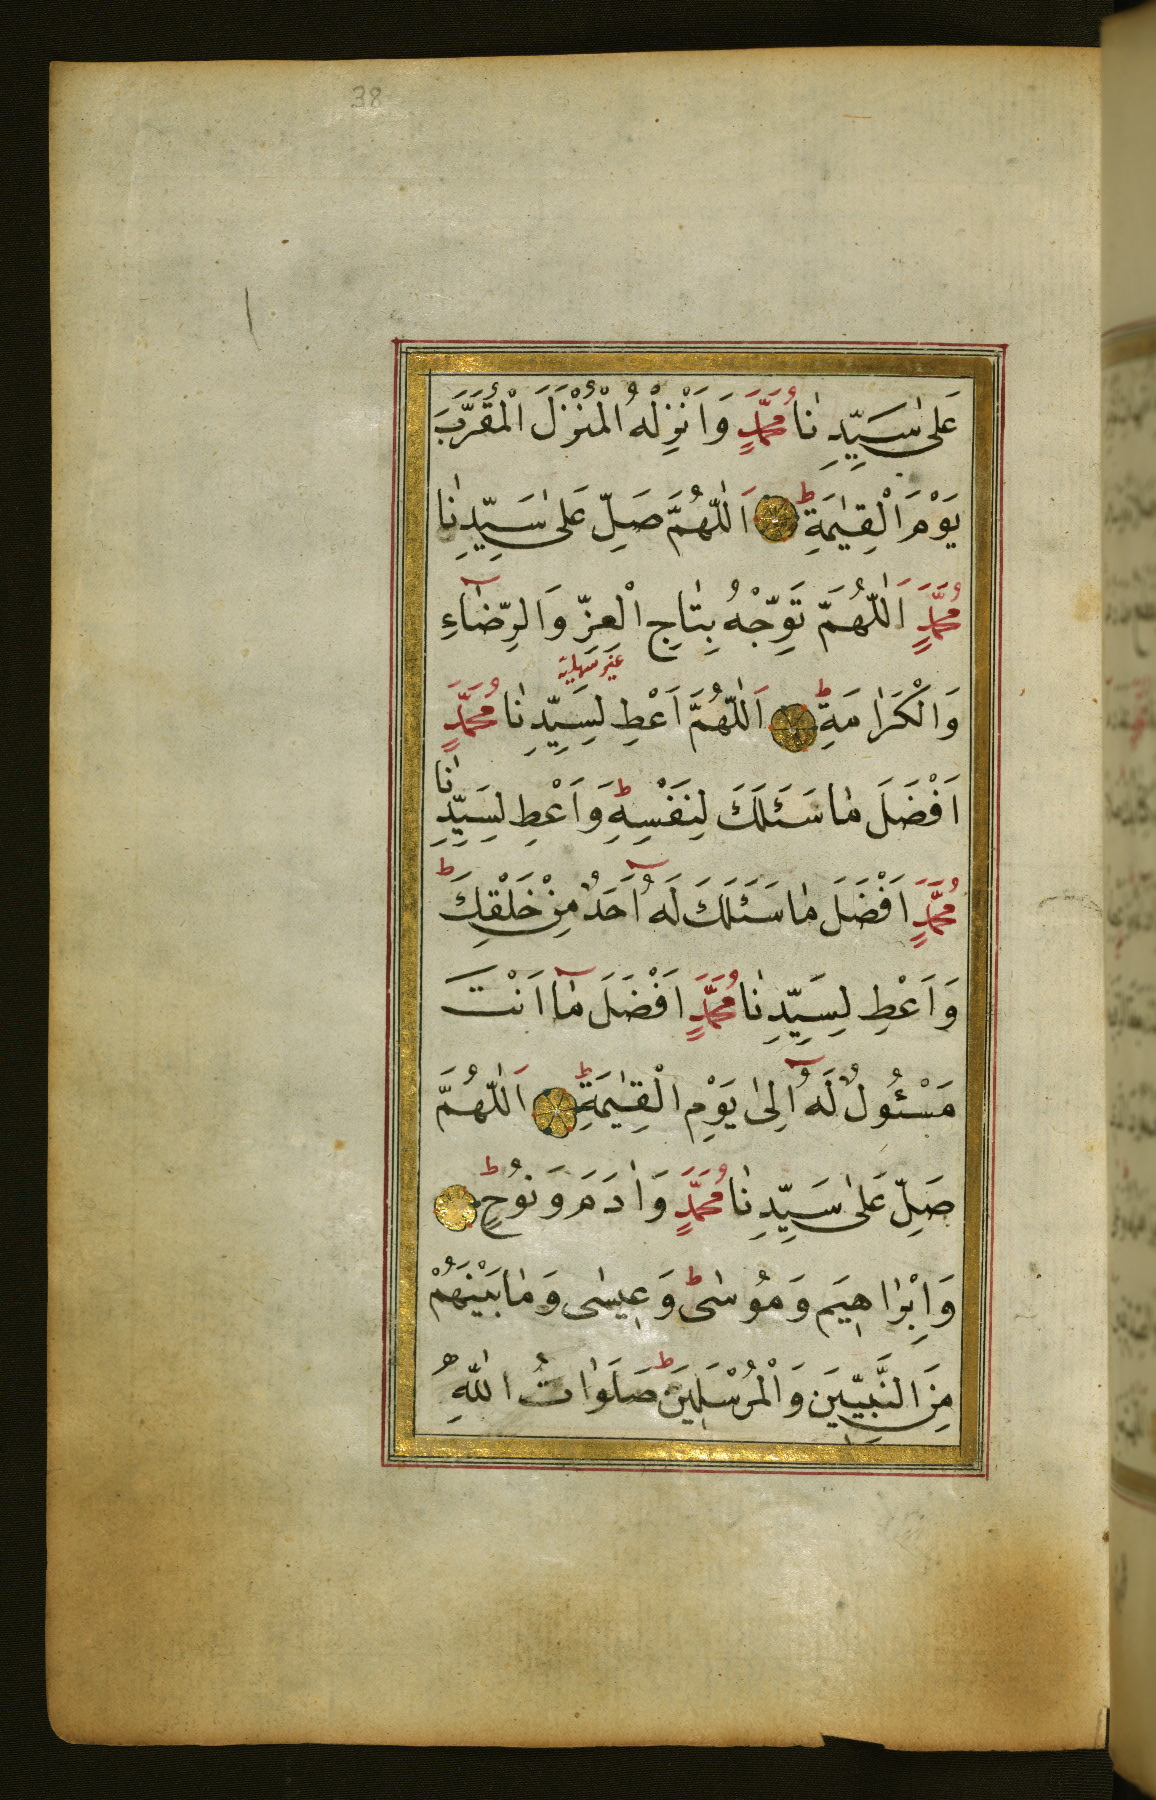 38
عَلٰى سَيِّدِنٰا مُحَمَّدٍ وَاَنْزِلْهُ الْمُنْزَلَ الْمُقَرَّبَ
يَوْمَ الْقِيٰمَةِ ط اَللّٰهُمَّ صَلِّ عَلٰى سَيِّدِنٰا
مُحَمَّدٍ اَللّٰهُمَّ تَوِّجْهُ بِتٰاجِ الْعِزِّ وَالرِّضٰٓاءِ
غير سهلية
وَالْكَرٰامَةِ ط اَللّٰهُمَّ اَعْطِ لِسَيِّدِنٰا مُحَمَّدٍ
اَفْضَلَ مٰا سَئَلَكَ لِنَفْسِهِ ط وَاَعْطِ لِسَيِّدِنٰا
مُحَمَّدٍ اَفْضَلَ مٰا سَئَلَكَ لَهُٓ اَحَدٌ مِنْ خَلْقِكَ ط
وَاَعْطِ لِسَيِّدِنٰا مُحَمَّدٍ اَفْضَلَ مٰٓا اَنْتَ
مَسْئُولٌ لَهُٓ اِلىٰ يَوْمِ الْقِيٰمَةِ ط اَللّٰهُمَّ
صَلِّ عَلٰى سَيِّدِنٰا مُحَمَّدٍ وَاٰدَمَ وَنُوحٍ ط
وَاِبْرٰاهِيمَ وَمُوسٰى ط وَعِيسٰى وَمٰا بَيْنَهُمْ
مِنَ النَّبِيّينَ وَالْمُرْسَلِينَ ط صَلَوٰاتُ اللّٰهِ